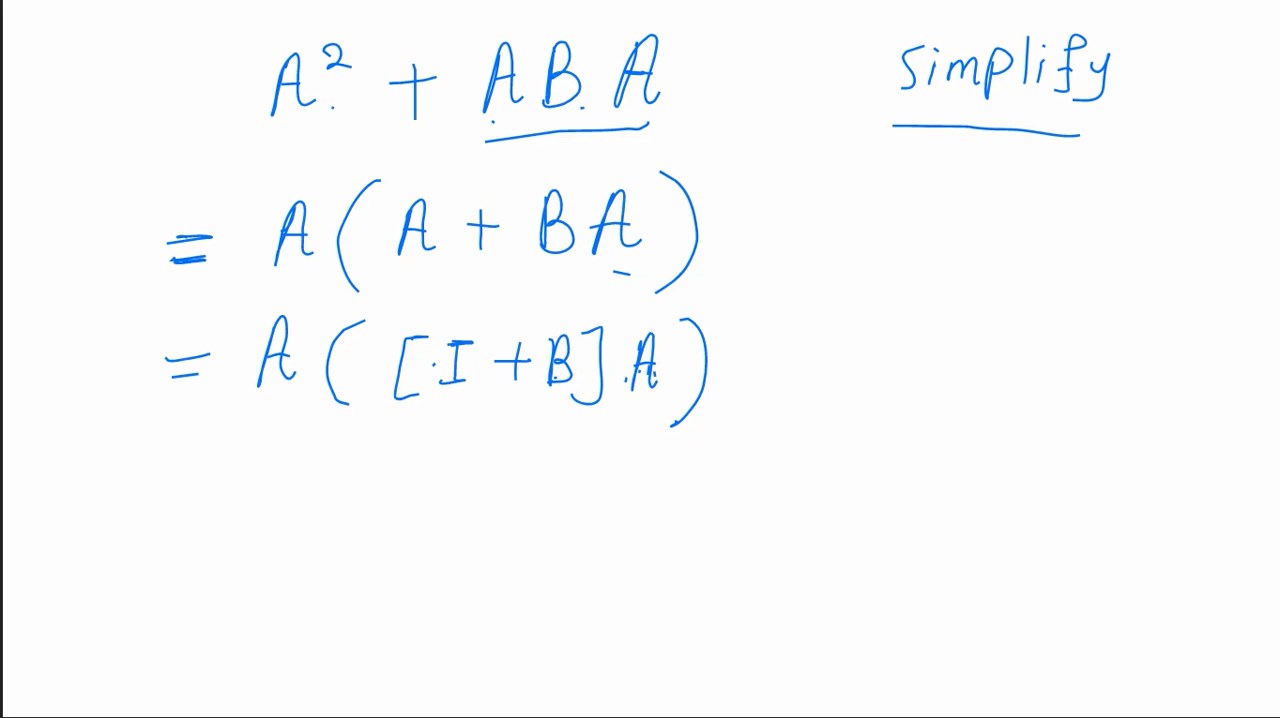 A² + AB.A simplify
= A(A + BA)
= A([I + B]A)